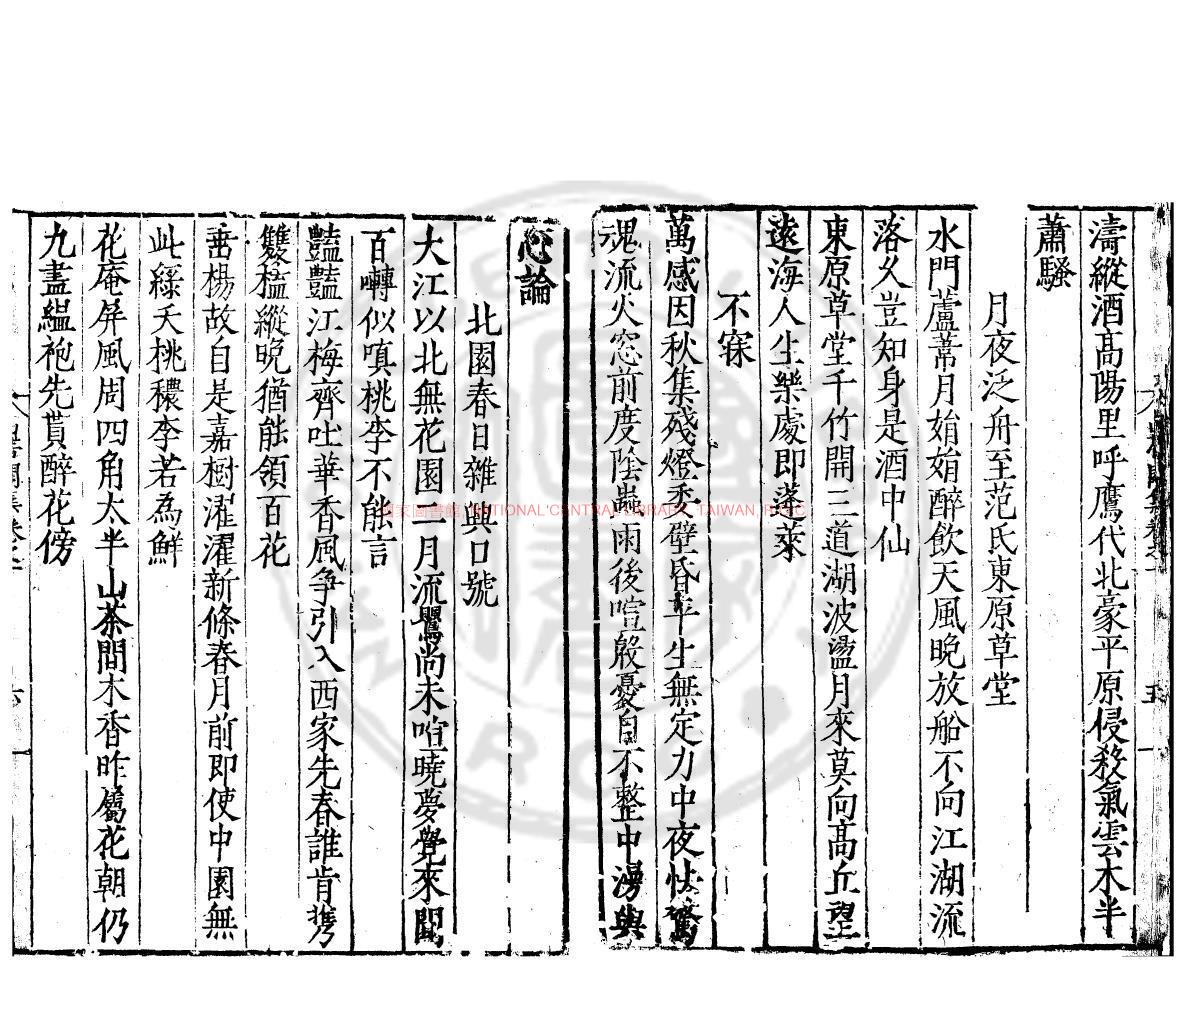 濤縱酒高陽里呼鷹代北豪平原侵殺氣雲木半
蕭騷
月夜泛舟至范氏東原草堂
水門蘆葦月娟娟醉飲天風晚放船不向江湖流
落久豈知身是酒中仙
東原草堂千竹開三道湖波盪月來莫向高丘望
遠海人生樂處即蓬萊
不寐
萬感因秋集殘燈委壁昏平生無定力中夜怯驚
魂流火窓前度陰蟲雨後喧殷憂自不整中湯與
心論
北園春日雜興口號
大江以北無花園二月流鶯尚未喧曉夢覺來聞
百囀似嗔桃李不能言
豔豔江梅齊吐華香風争引入西家先春誰肯携
雙榼縱晚猶能領百花
垂楊故自是嘉樹濯濯新條春月前即使中園無
此綠夭桃穠李若為鮮
花庵屏風周四角太半山茶間木香昨屬花朝仍
九盡縕袍先貰醉花傍
國家圖書館 NATIONAL CENTRAL LIBRARY, TAIWAN, R.O.C.